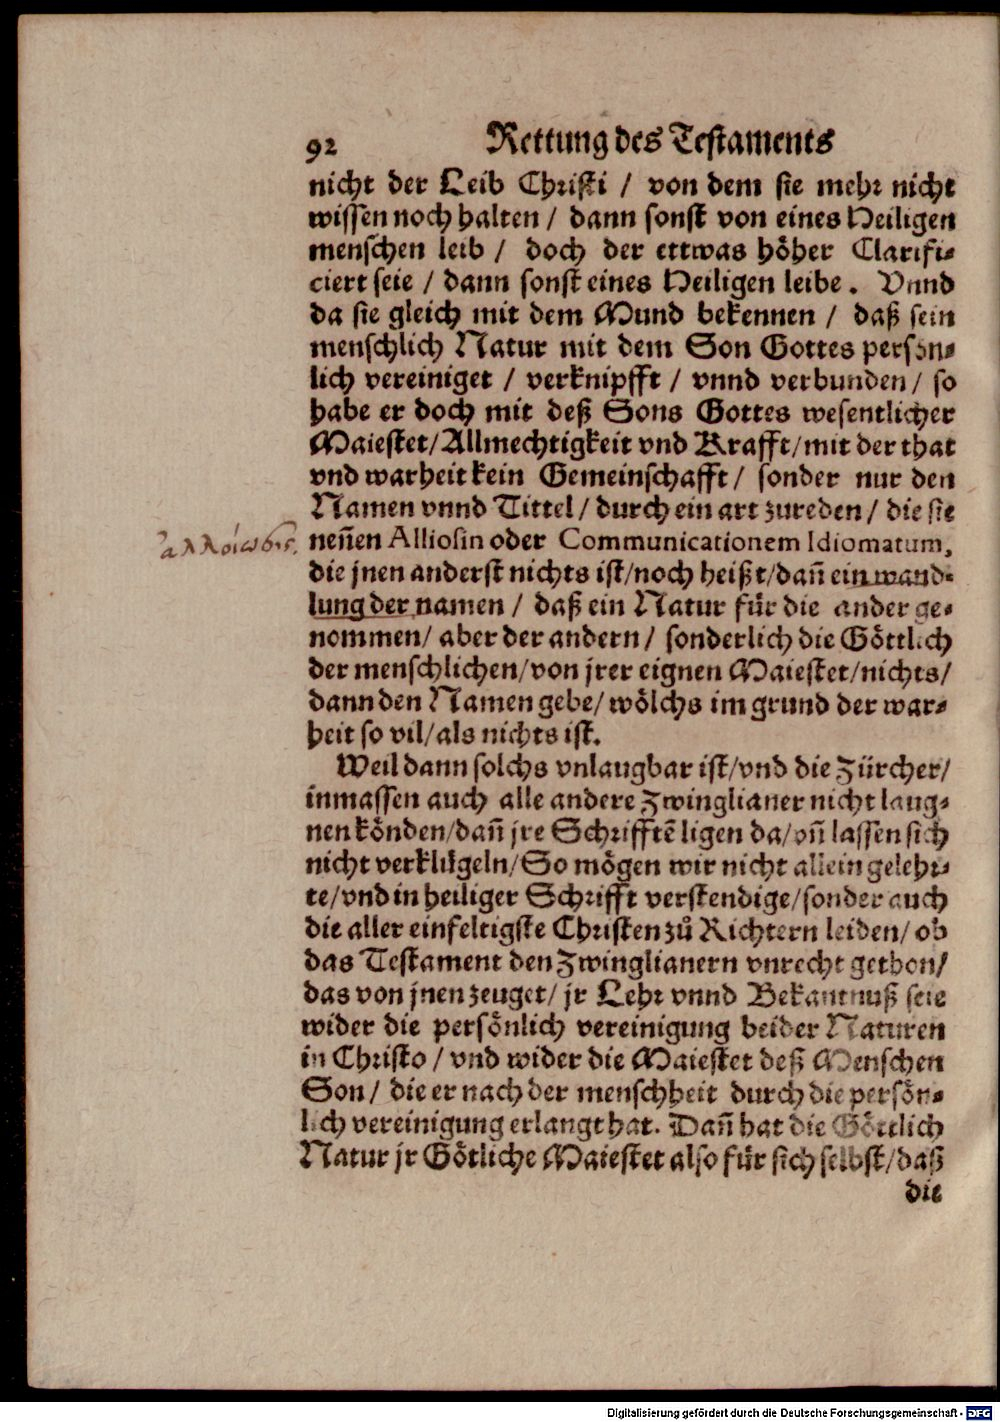 92 Rettung des Testaments
nicht der Leib Christi / von dem sie mehr nicht
wissen noch halten / dann sonst von eines Heiligen
menschen leib / doch der ettwas höher Clarifi-
ciert seie / dann sonst eines Heiligen leibe. Vnnd
da sie gleich mit dem Mund bekennen / daß sein
menschlich Natur mit dem Son Gottes persön-
lich vereiniget / verknipfft / vnnd verbunden / so
habe er doch mit deß Sons Gottes wesentlicher
Maiestet/Allmechtigkeit vnd Krafft/mit der that
vnd warheit kein Gemeinschafft / sonder nur den
Namen vnnd Tittel / durch ein art zureden / die sie
ἀλλοίωσις. neñen Alliosin oder Communicationem Idiomatum,
die jnen anderst nichts ist/noch heißt/dañ ein wand-
lung der namen / daß ein Natur für die ander ge-
nommen/ aber der andern / sonderlich die Göttlich
der menschlichen/von jrer eignen Maiestet/nichts/
dann den Namen gebe/ wölchs im grund der war-
heit so vil/als nichts ist.
Weil dann solchs vnlaugbar ist/vnd die Zürcher/
inmassen auch alle andere Zwinglianer nicht laug-
nen könden/dañ jre Schrifftē ligen da/vñ lassen sich
nicht verklügeln/So mögen wir nicht allein gelehr-
te/vnd in heiliger Schrifft verstendige/sonder auch
die aller einfeltigste Christen zů Richtern leiden/ ob
das Testament den Zwinglianern vnrecht gethon/
das von jnen zeuget/ jr Lehr vnnd Bekantnuß seie
wider die persönlich vereinigung beider Naturen
in Christo / vnd wider die Maiestet deß Menschen
Son / die er nach der menschheit durch die persön-
lich vereinigung erlangt hat. Dañ hat die Göttlich
Natur jr Götliche Maiestet also für sich selbst/daß
die
Digitalisierung gefördert durch die Deutsche Forschungsgemeinschaft - DFG